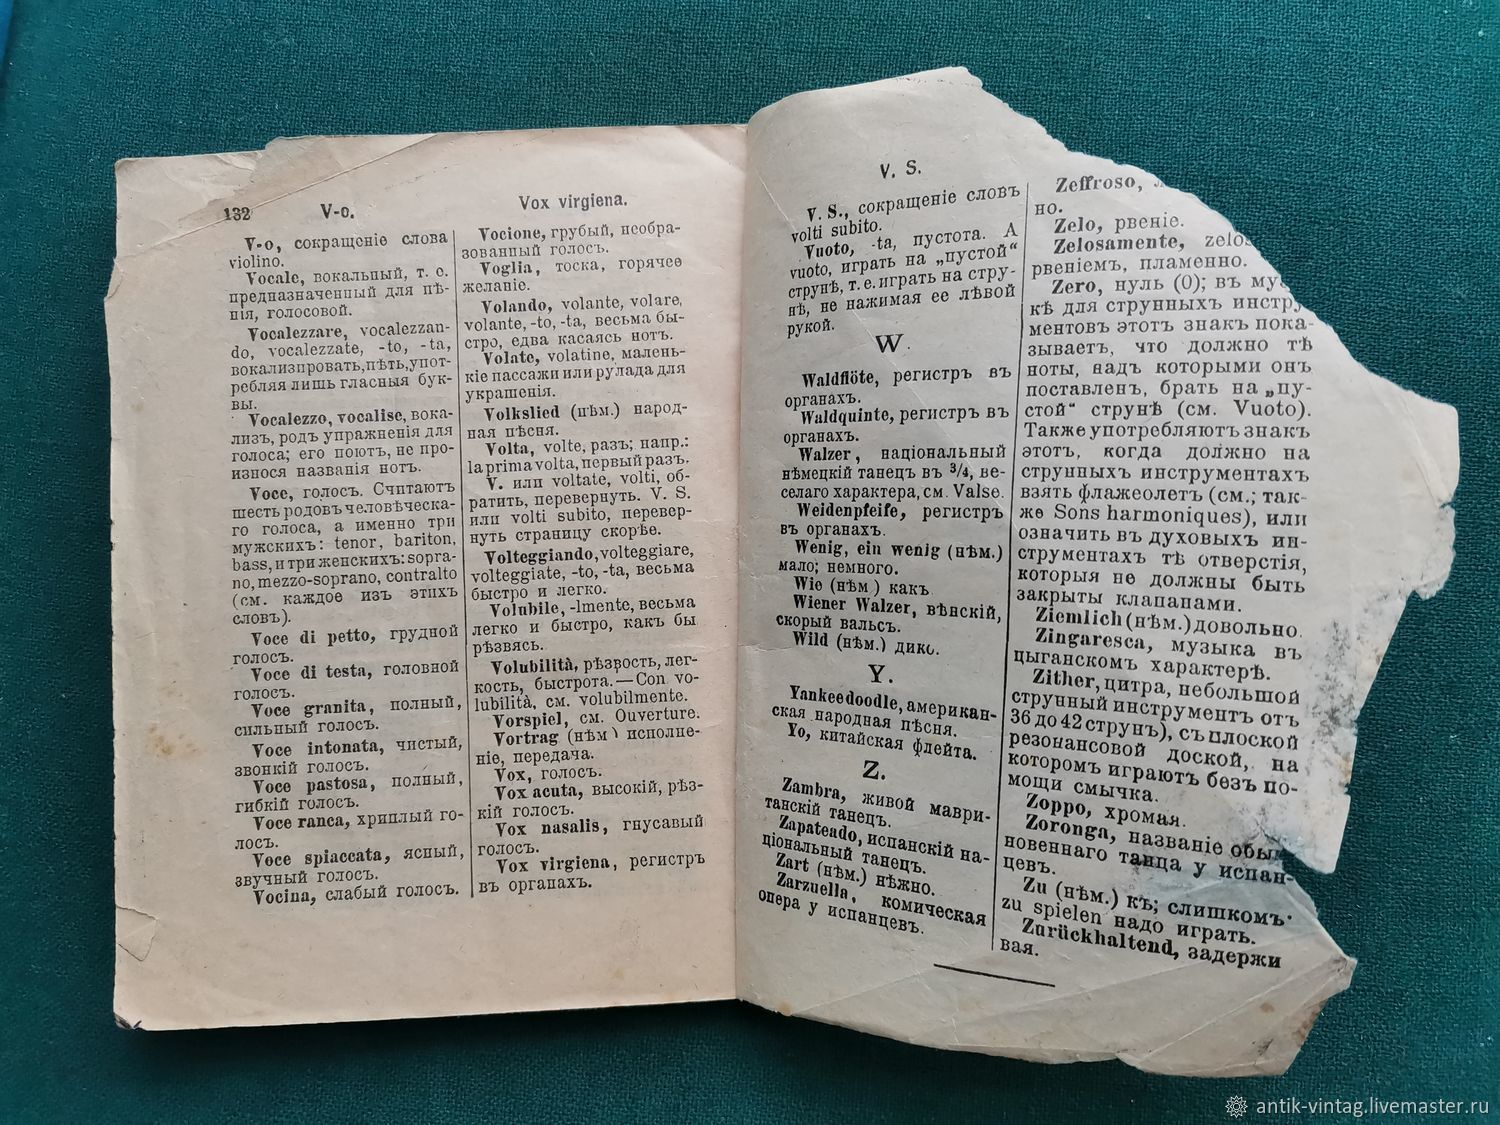 132
V-o.
Vox virgiena.
V-o, сокращеніе слова
violino.
Vocale, вокальный, т. е.
предназначенный для пѣ-
нія, голосовой.
Vocalezzare, vocalezzan-
do, vocalezzate, -to, -ta,
вокализировать, пѣть, упот-
ребляя лишь гласныя бук-
вы.
Vocalezzo, vocalise, вока-
лизъ, родъ упражненія для
голоса; его поютъ, не про-
износя названія нотъ.
Voce, голосъ. Считаютъ
шесть родовъ человѣческа-
го голоса, а именно три
мужскихъ: tenor, bariton,
bass, и три женскихъ: sopra-
no, mezzo-soprano, contralto
(см. каждое изъ этихъ
словъ).
Voce di petto, грудной
голосъ.
Voce di testa, головной
голосъ.
Voce granita, полный,
сильный голосъ.
Voce intonata, чистый,
звонкій голосъ.
Voce pastosa, полный,
гибкій голосъ.
Voce ranca, хриплый го-
лосъ.
Voce spiaccata, ясный,
звучный голосъ.
Vocina, слабый голосъ.
Vocione, грубый, необра-
зованный голосъ.
Voglia, тоска, горячее
желаніе.
Volando, volante, volare,
volante, -to, -ta, весьма бы-
стро, едва касаясь нотъ.
Volate, volatine, малень-
кіе пассажи или рулада для
украшенія.
Volkslied (нѣм.) народ-
ная пѣсня.
Volta, volte, разъ; напр.:
la prima volta, первый разъ.
V. или voltate, volti, об-
ратить, перевернуть. V. S.
или volti subito, перевер-
нуть страницу скорѣе.
Volteggiando, volteggiare,
volteggiate, -to, -ta, весьма
быстро и легко.
Volubile, -lmente, весьма
легко и быстро, какъ бы
рѣзвясь.
Volubilità, рѣзвость, лег-
кость, быстрота.—Con vo-
lubilità, см. volubilmente.
Vorspiel, см. Ouverture.
Vortrag (нѣм ) исполне-
ніе, передача.
Vox, голосъ.
Vox acuta, высокій, рѣз-
кій голосъ.
Vox nasalis, гнусавый
голосъ.
Vox virgiena, регистръ
въ органахъ.
V. S.
V. S., сокращеніе словъ
volti subito.
Vuoto, -ta, пустота. A
vuoto, играть на „пустой“
струнѣ, т. е. играть на стру-
нѣ, не нажимая ее лѣвой
рукой.
W.
Waldflöte, регистръ въ
органахъ.
Waldquinte, регистръ въ
органахъ.
Walzer, національный
нѣмецкій танецъ въ 3/4, ве-
селаго характера, см. Valse.
Weidenpfeife, регистръ
въ органахъ.
Wenig, ein wenig (нѣм.)
мало; немного.
Wie (нѣм ) какъ.
Wiener Walzer, вѣнскій,
скорый вальсъ.
Wild (нѣм.) дико.
Y.
Yankeedoodle, американ-
ская народная пѣсня.
Yo, китайская флейта.
Z.
Zambra, живой маври-
танскій танецъ.
Zapateado, испанскій на-
ціональный танецъ.
Zart (нѣм.) нѣжно.
Zarzuella, комическая
опера у испанцевъ.
Zeffroso,
но.
Zelo, рвеніе.
Zelosamente,
рвеніемъ, пламенно.
Zero, нуль (0); въ
кѣ для струнныхъ
ментовъ этотъ знакъ пока-
зываетъ, что должно тѣ
ноты, надъ которыми онъ
поставленъ, брать на „пу-
стой“ струнѣ (см. Vuoto).
Также употребляютъ знакъ
этотъ, когда должно на
струнныхъ инструментахъ
взять флажеолетъ (см.; так-
же Sons harmoniques), или
означить въ духовыхъ ин-
струментахъ тѣ отверстія,
которыя не должны быть
закрыты клапанами.
Ziemlich (нѣм.) довольно.
Zingaresca, музыка въ
цыганскомъ характерѣ.
Zither, цитра, небольшой
струнный инструментъ отъ
36 до 42 струнъ), съ плоской
резонансовой доской, на
которомъ играютъ безъ по-
мощи смычка.
Zoppo, хромая.
Zoronga, названіе
новеннаго танца у испан-
цевъ.
Zu (нѣм.) къ; слишкомъ
zu spielen надо играть.
Zurückhaltend, задержи
вая.
antik-vintag.livemaster.ru